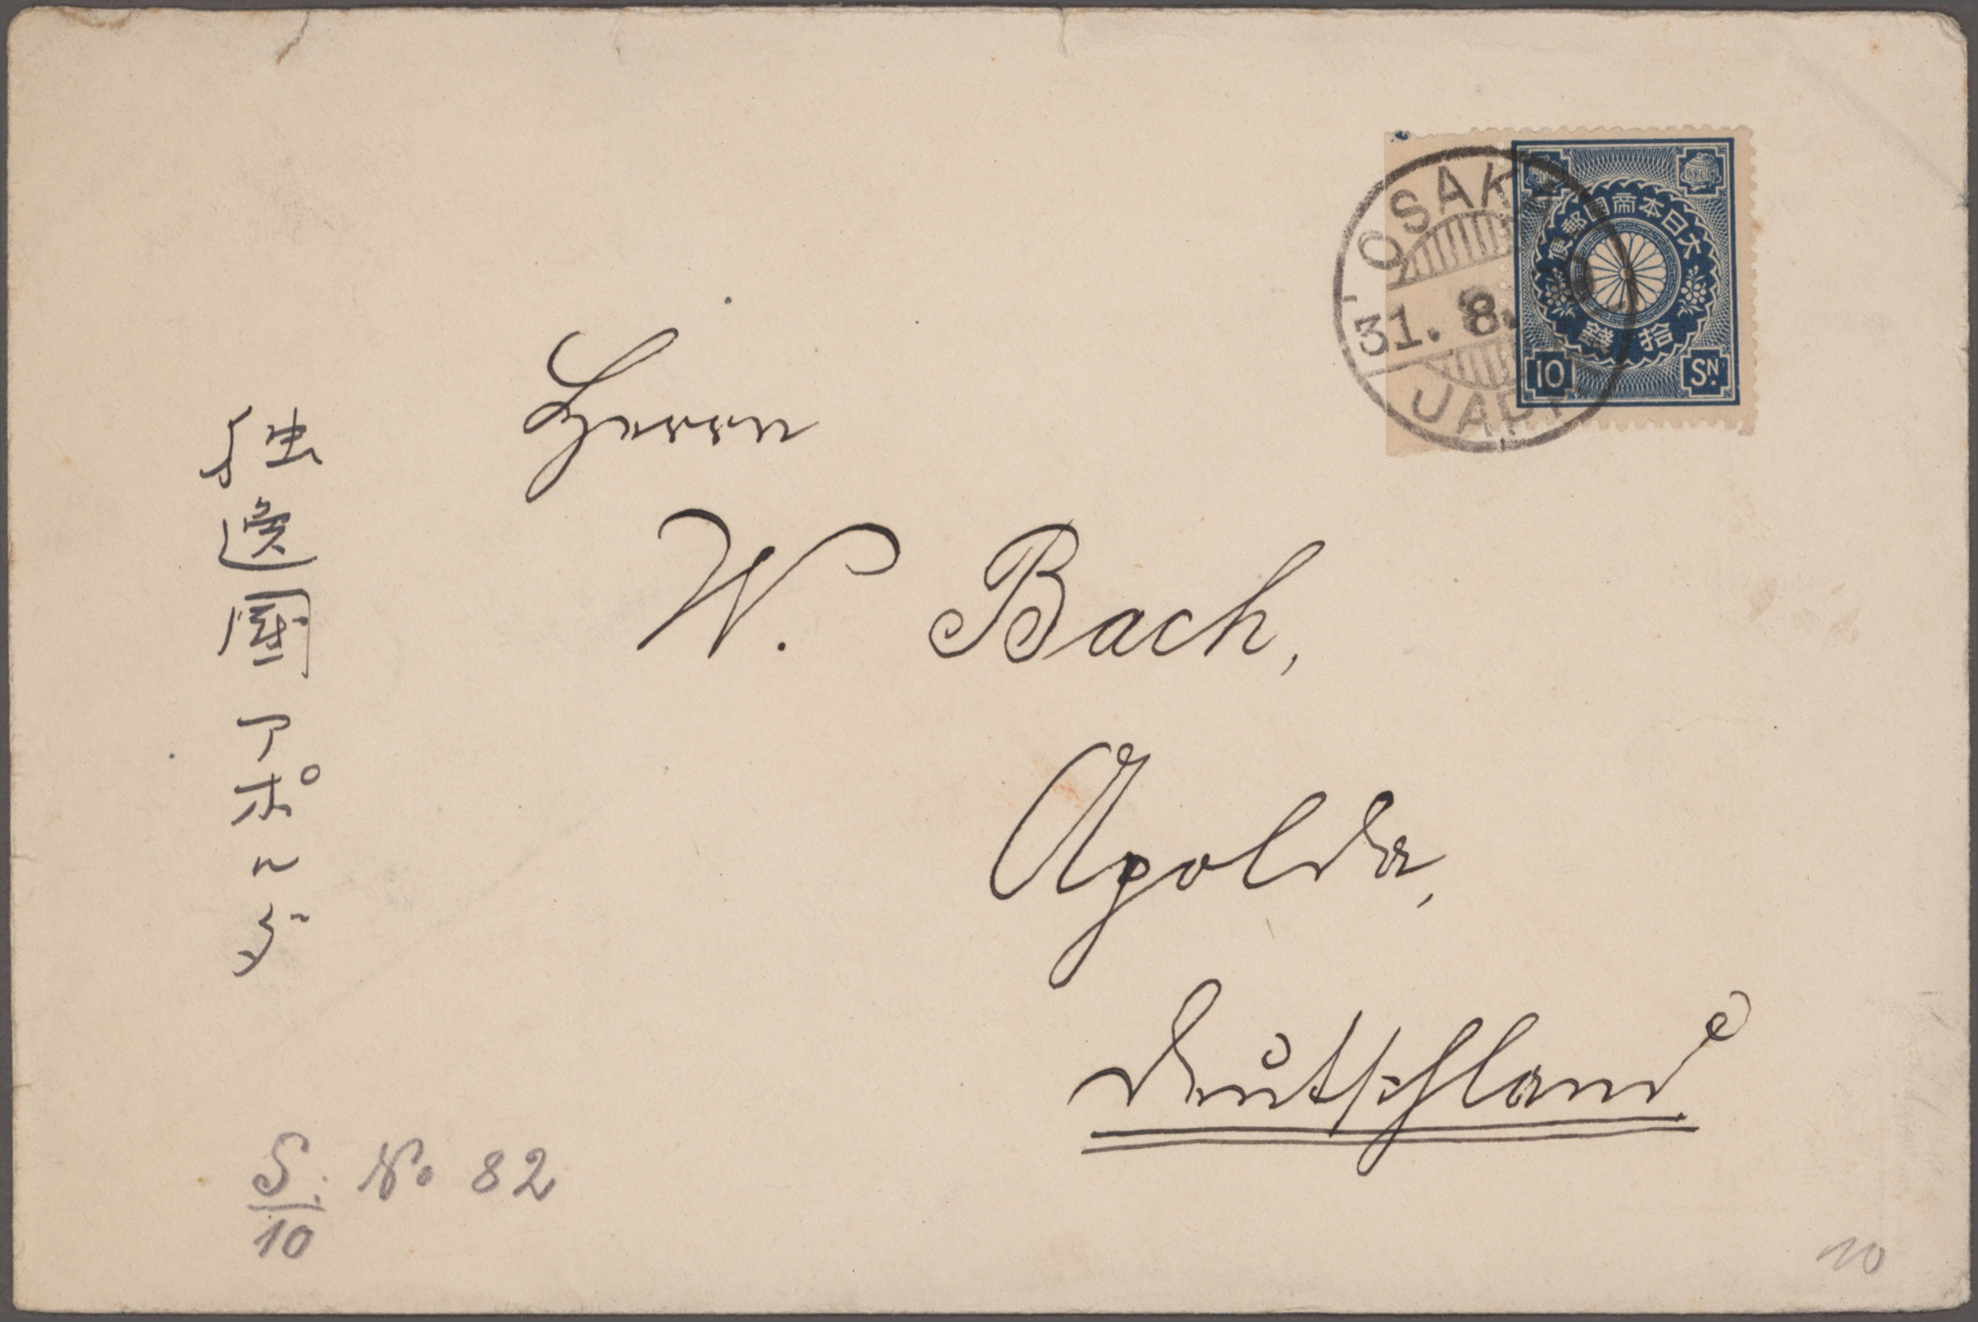 OSAKA
31. 8.
JAPA
大日本帝國郵便
拾錢
10 SN.
Herrn
W. Bach,
Apolda,
Deutschland
独逸國アポルダ
S. No 82
10
10